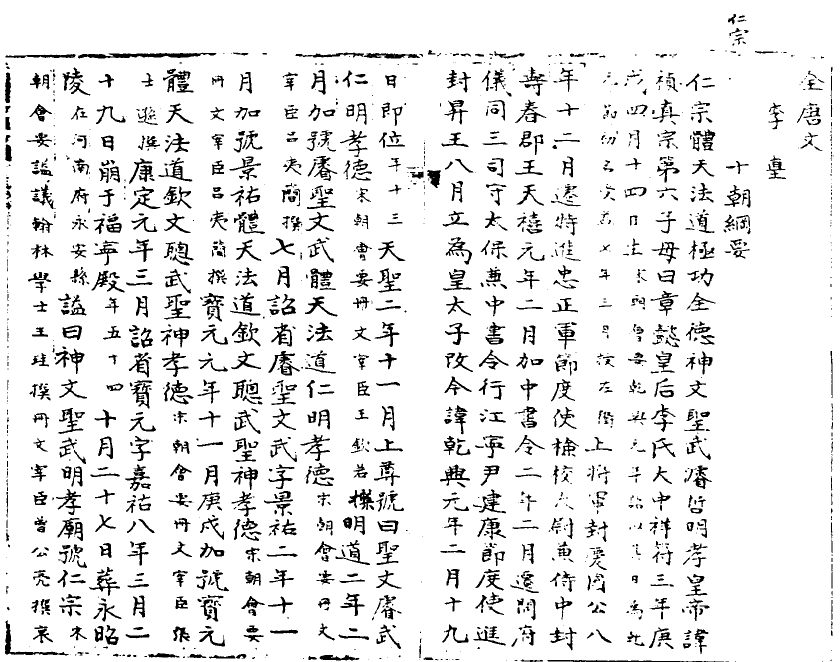 仁宗
全唐文
李𡌴
十朝綱要
仁宗體天法道極功全德神文聖武濬哲明孝皇帝諱
禎真宗第六子母曰章懿皇后李氏大中祥符三年庚
戌四月十四日生宋朝會要乾興元年詔以其日為乾
元節初名受益七年三月授左衛上將軍封慶國公八
年十二月遷特進忠正軍節度使檢校太尉兼侍中封
壽春郡王天禧元年二月加中書令二年二月遷開府
儀同三司守太保兼中書令行江寧尹建康節度使進
封昇王八月立為皇太子改今諱乾興元年二月十九
日即位年十三天聖二年十一月上尊號曰聖文睿武
仁明孝德宋朝會要冊文宰臣王欽若撰明道二年二
月加號睿聖文武體天法道仁明孝德宋朝會要冊文
宰臣呂夷簡撰七月詔省睿聖文武字景祐二年十一
月加號景祐體天法道欽文聰武聖神孝德宋朝會要
冊文宰臣呂夷簡撰寶元元年十一月庚戌加號寶元
體天法道欽文聰武聖神孝德宋朝會要冊文宰臣張
士遜撰康定元年三月詔省寶元字嘉祐八年三月二
十九日崩于福寧殿年五十四十月二十七日葬永昭
陵在河南府永安縣諡曰神文聖武明孝廟號仁宗宋
朝會要諡議翰林學士王珪撰冊文宰臣曾公亮撰哀